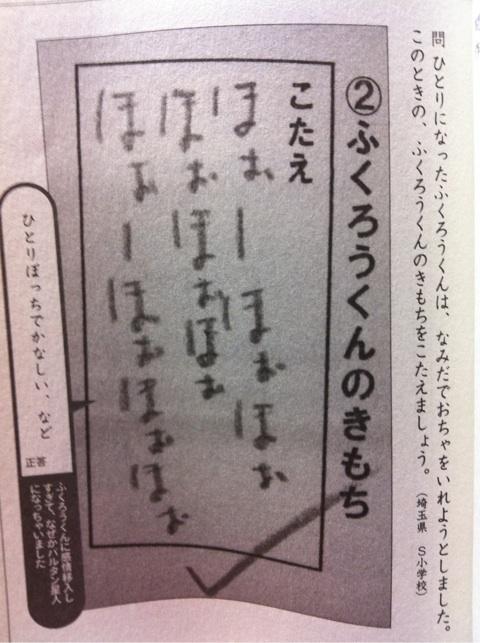 問 ひとりになったふくろうくんは、なみだでおちゃをいれようとしました。
このときの、ふくろうくんのきもちをこたえましょう。
（埼玉県 S小学校）
②ふくろうくんのきもち
こたえ
ほぉーほぉほぉ
ほぉほぉほぉ
ほぉーほぉほぉほぉ
ひとりぼっちでかなしい、など
正答
ふくろうくんに感情移入し
すぎて、なぜかバルタン星人
になっちゃいました